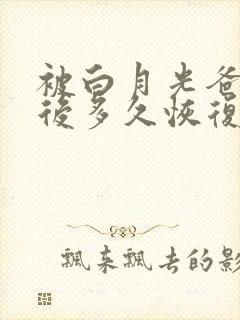 被白月光爸
後多久恢復
飄來飄去的影